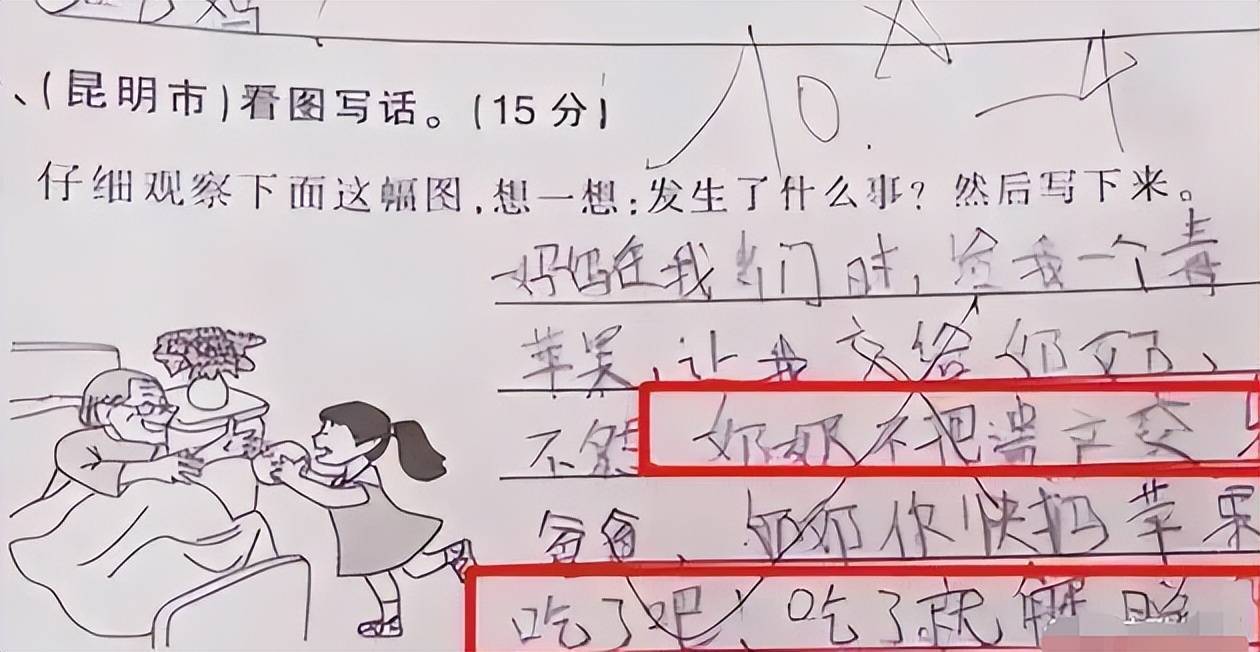 、(昆明市)看图写话。(15分)
仔细观察下面这幅图,想一想:发生了什么事?然后写下来。
妈妈在我出门时,给我一个毒
苹果,让我交给奶奶、
不然奶奶不把遗产交
爸爸、奶奶你快把苹果
吃了吧!吃了就解脱